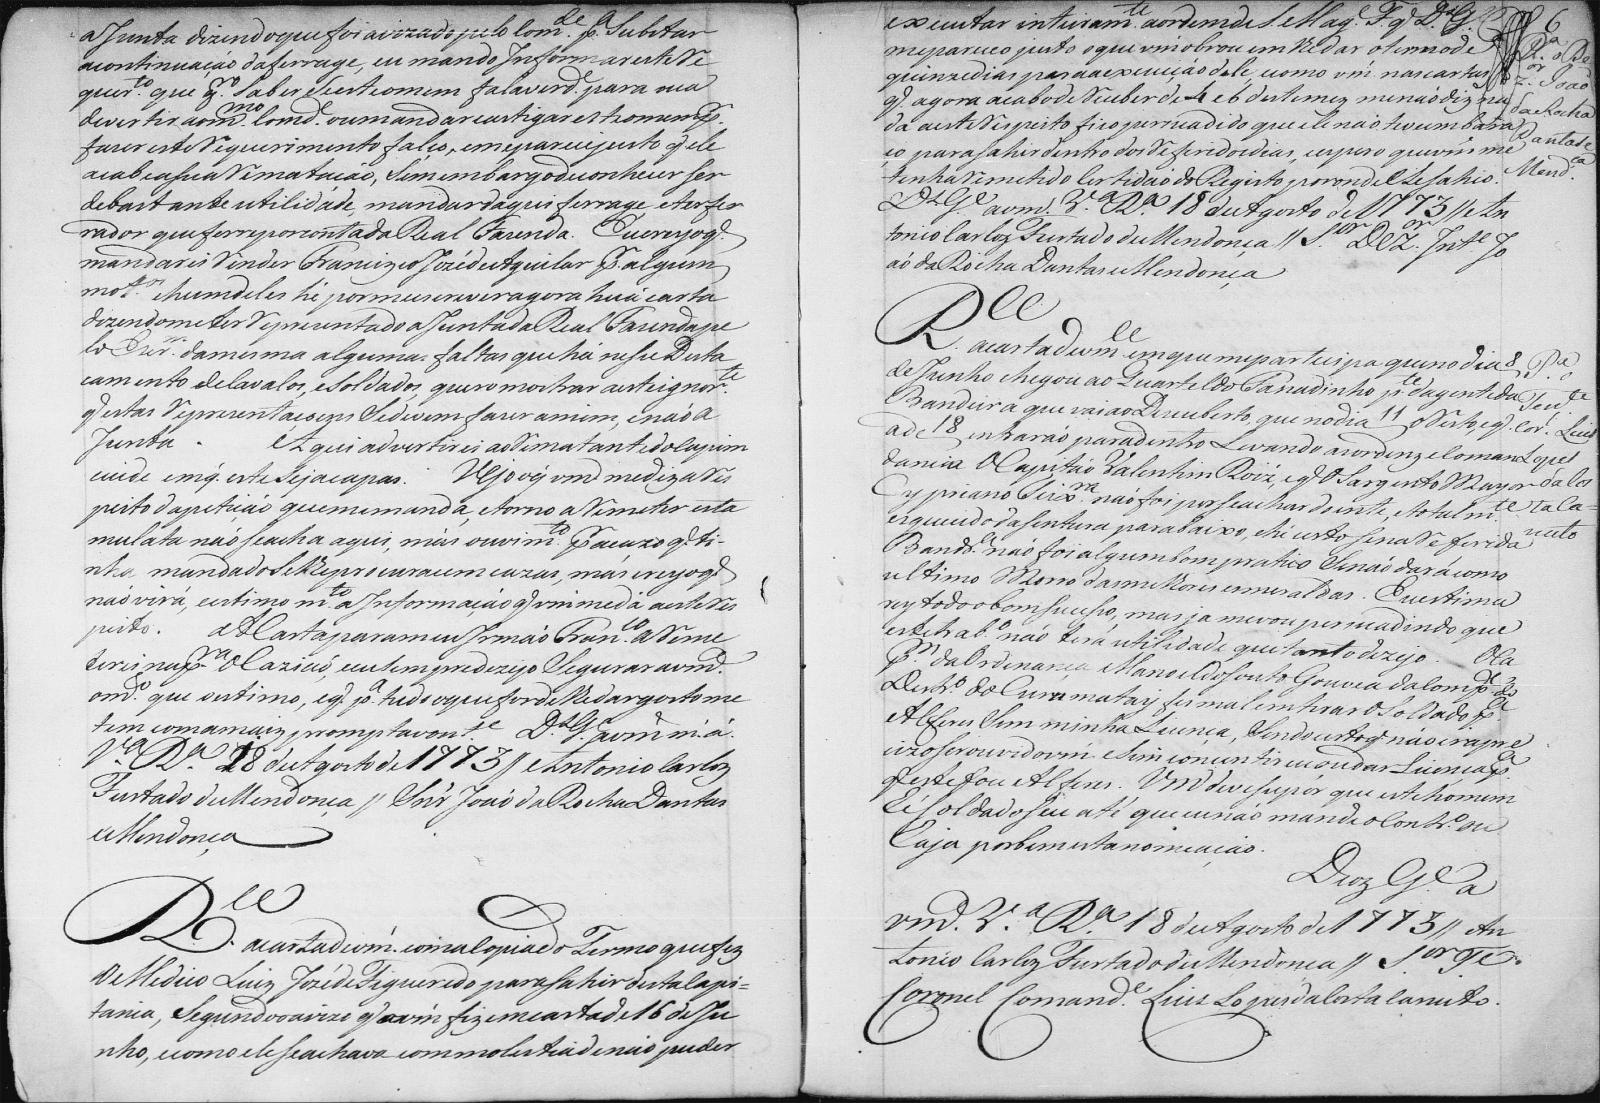 a Junta dizendo que foi avizado pelo Com.de p.a Subistar
a continuação da ferrage, eu mando Informar este Re
quer.to que p.a Saber se este omem fala verd.e para eu a
devertir ao m.mo Comd.e ou mandar castigar este homem p.r
fazer este Requerimento falço, e me parece justo q' ele
acabe a sua Rematação, Sem embargo de conhecer ser
de bastante utilidade, mandar daqui ferrage, e ter fer
rador que ferre por conta da Real Fazenda. Eu creyo q'
mandareis Render Francisco Jozé de Aguilar p.r algum
mot.o e hum deles hé por me escrever agora huã carta
dizendome ter Reprezentado a Junta da Real Fazenda pe
lo Escr.m da mesma algumas faltas que há nesse Desta
camento de Cavalos, e Soldados, quero mostrar a este ignor.te
q' estas Reprezentaçoens Se devem fazer a mim, e não a
Junta. Aqui advertireis ao Rematante do Capim
cuide em q' este Seja capas. Vejo o q' vmd me diz a Res
peito da petição que me manda, e torno a Remeter esta
mulata não se acha aqui, más ouvi m.to p.r acazo q' ti
nha mandado Se lhe procurace em cazas, más creyo q'
não virá, e estimo m.to a Informação q' vm me dá a este Res
peito. A Carta para meu Irmão Fran.co a Reme
terei na pr.a ocazião, eu tempre dezejo Segurar a vmd.
o m.to que o estimo, e q' p.a tudo o que for de lhe dar gosto me
tem com a maiz prompta vont.e D.s G.e a vm m. a.
V.a R.a 18 de Agosto de 1773 // Antonio Carlos
Furtado de Mendonça // Snr' João da Rocha Dantas
e Mendonça
R.ce a carta de vm. com a Copia do Termo que fez
o Medico Luiz Jozé de Figueredo para Sahir desta Capi=
tania, Segundo o avizo q' a vm fiz em carta de 16 de Ju
nho, e como ele se achava com molestia de não puder
executar inteiram.te a ordem de S. Mag.e F. q' D.s G.e
me pareceo justo o que vm obrou em lhe dar o termo de
quinze dias para a execução dele, e como vm. nas cartas
q' agora acabo de Receber de 4 e 6 deste mez me não diz na
da a este Respeito fico persuadido que ele não teve embara
ço para Sahir dentro dos Referidos dias, e espero que vm. me
tenha Remetido Certidão do Registo por onde ele Sahio.
D.s G.e a vmd. V.a R.a 18 de Agosto de 1773 // An
tonio Carlos Furtado de Mendonça // S.or Dez.or Int.e Jo
aõ da Rocha Dantas e Mendonça
6
P.a o De
z.or João
da Rocha
Dantas e
Mend.ca
R.ce a carta de vm.ce em que me partecipa que no dia 8
de Junho chegou ao Quartel do Panadinho p.te da gente da
Bandeira que vai ao Descuberto, que no dia 11 o Resto, e q'
a de 18 entrarão para dentro Levando a ordenz e Coman
dancia o Capitão Valentim Roiz, e q' o Sargento Mayor
Cypriano Seix.ra não foi por se achar doente, e totalm.te
esquecido da Sentura para baixo, e hé certo se na Referida
Band.ra não foi algum bom pratico Se não dará com o
ultimo Morro das melhores esmeraldas. Eu estima
rey todo o bom Sucesso, mas já me vou persuadindo que
este trab.o não terá utilidade que tanto dezejo. O Ca
p.m da Ordenança Manoel do Souto Gouvea da Comp.a do
Destr.o do Curumatay fes mal em tirar o Soldado p.a
Alferes Sem minha Licença, Sendo certo q' não era pre
cizo Ser ouvido vm. e Sem eu convir eu ou dar Licença p.a
q' este foce Alferes. Vm. deve supor que este homem
hé Soldado Seu até que eu não mande o Contr.o ou
haja por bem esta nomeação.
Deoz G.e a
vmd. V.a R.a 18 de Agosto de 1773 // An
tonio Carlos Furtado de Mendonça // S.or Te.
Coronel Comand.e Luis Lopes da Costa Canuto.
P.a o
Ten.te
Cor. Luis
Lopes
da Cos
ta Ca=
nuto